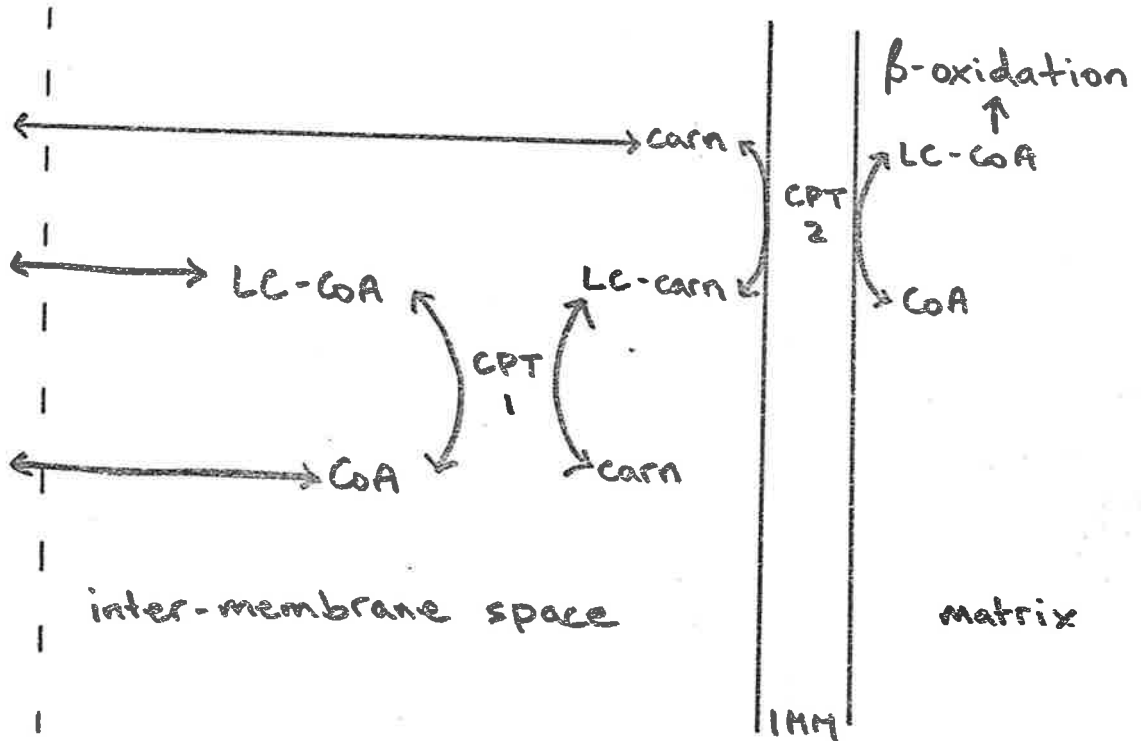 β-oxidation
carn
LC-CoA
CPT
2
LC-CoA
LC-carn
CoA
CPT
1
CoA
carn
inter-membrane space
matrix
IMM